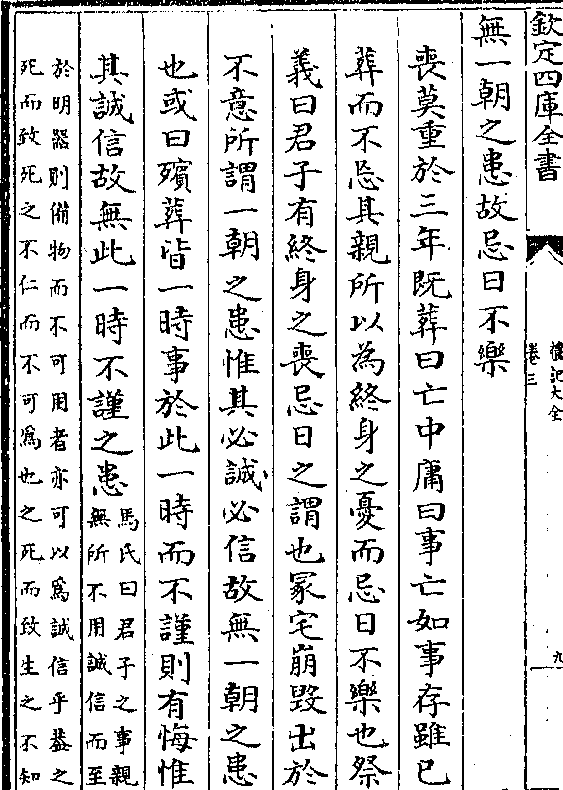 欽定四庫全書
禮記大全
卷三
九
無一朝之患故忌日不樂
喪莫重於三年既葬曰亡中庸曰事亡如事存雖已
葬而不忘其親所以為終身之憂而忌日不樂也祭
義曰君子有終身之喪忌日之謂也冢宅崩毀出於
不意所謂一朝之患惟其必誠必信故無一朝之患
也或曰殯葬皆一時事於此一時而不謹則有悔惟
其誠信故無此一時不謹之患
馬氏曰君子之事親
無所不用誠信而至
於明器則備物而不可用者亦可以為誠信乎葢之
死而致死之不仁而不可為也之死而致生之不知